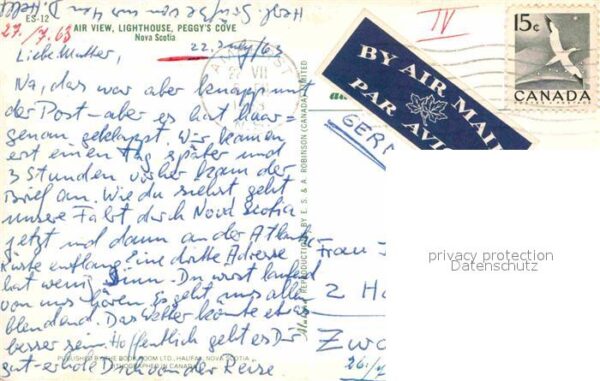 ES-12
AIR VIEW, LIGHTHOUSE, PEGGY'S COVE
Nova Scotia
27. /7. 63
IV
15c
CANADA
22. July/63
BY AIR MAIL
PAR AVION
Liebe Mutter,
Na, das war aber knapp mit
der Post - aber es hat haar=
genau geklappt. Wir kamen
erst einen Tag später und
3 Stunden vorher kam der
Brief an. Wie du siehst geht
unsere Fahrt durch Nova Scotia
jetzt und dann an der Atlantic-
küste entlang. Eine dritte Adresse
hat wenig Sinn. Du wirst laufend
von uns hören. Es geht uns allen
blendend. Das Wetter könnte etwas
besser sein. Hoffentlich geht es Dir
gut - erhole Dich von der Reise
Herzl.
PUBLISHED BY THE BOOK ROOM LTD., HALIFAX, NOVA SCOTIA
LITHOGRAPHED IN CANADA
REPRODUCTIONS BY E. S. & A. ROBINSON (CANADA) LIMITED
GER
Frau
2 Ha
privacy protection
Datenschutz